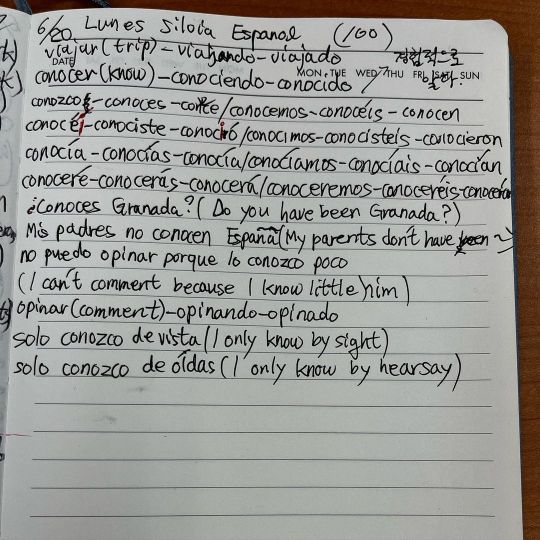 6/20 Lunes Silvia Espanol (100)
viajar (trip) - viahando - viajado 경험적으로
DATE MON TUE WED THU FRI SAT SUN
conocer (know) - conociendo - conocido 알다.
conozco - conoces - conoce / conocemos - conocéis - conocen
conocí - conociste - conoció / conocimos - conocisteis - conocieron
conocía - conocías - conocía / conocíamos - conocíais - conocían
conoceré - conocerás - conocerá / conoceremos - conoceréis - conocerán
¿Conoces Granada? (Do you have been Granada?)
Mis padres no conocen España (My parents don't have been ~)
no puedo opinar porque lo conozco poco
(I can't comment because I know little him)
opinar (comment) - opinando - opinado
solo conozco de vista (I only know by sight)
solo conozco de oídas (I only know by hearsay)